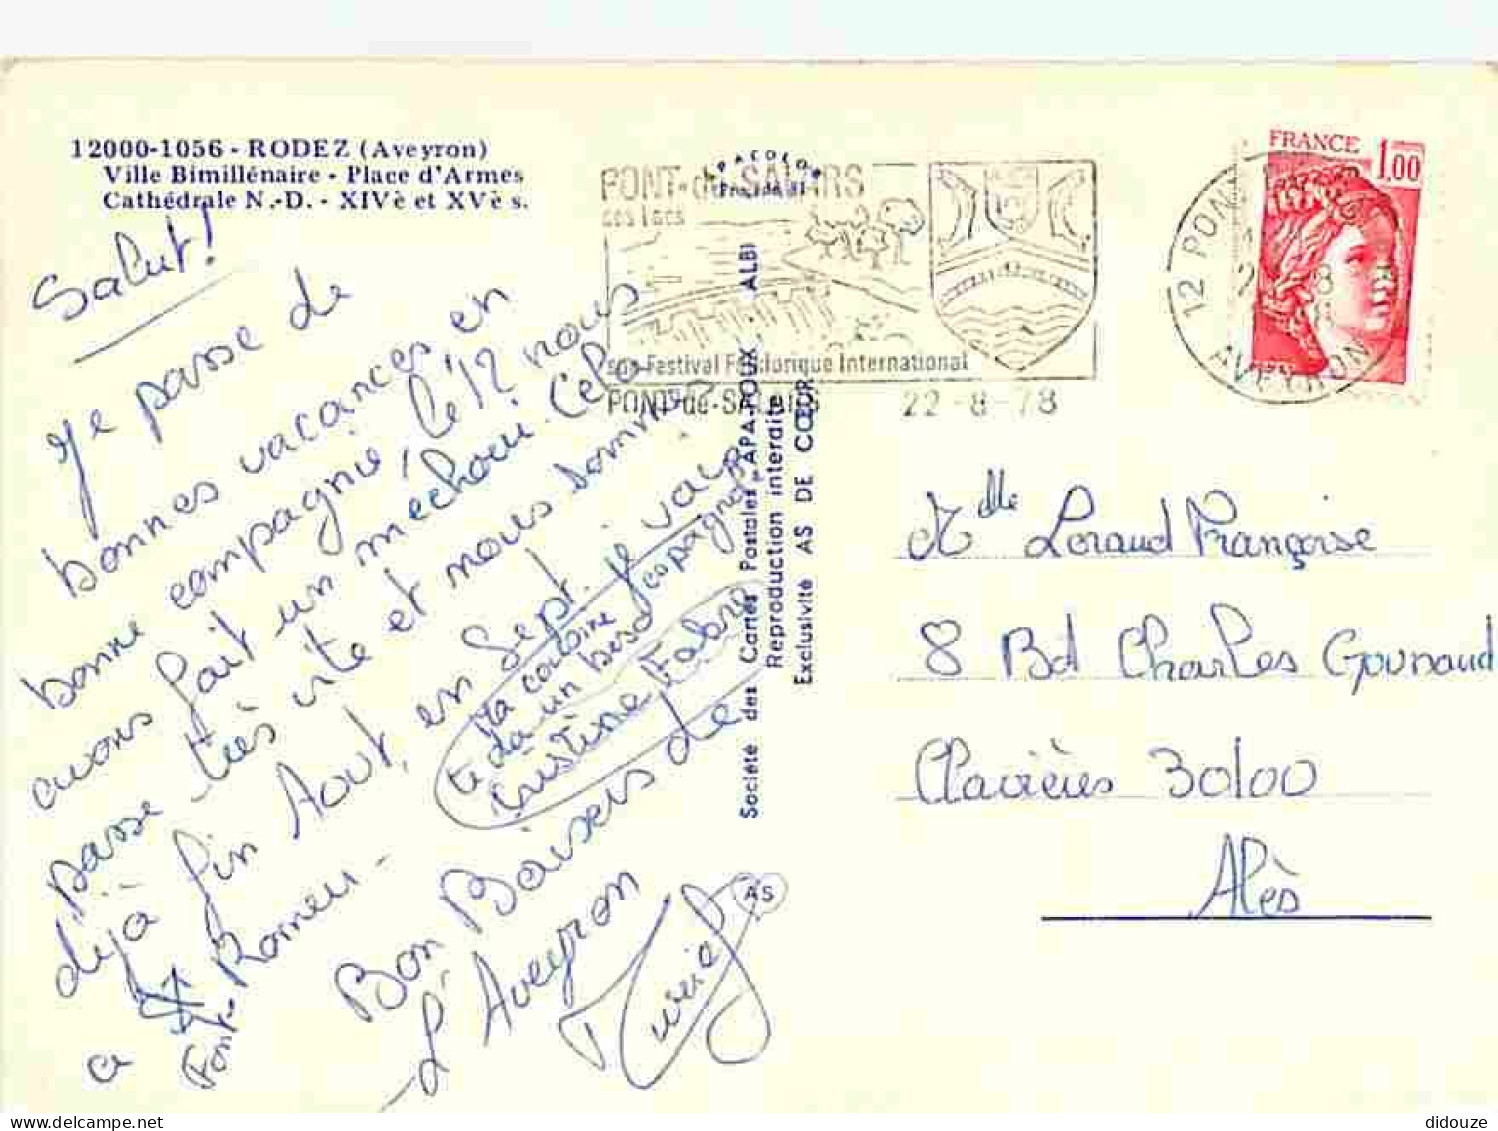 12000-1056 - RODEZ (Aveyron)
Ville Bimillénaire - Place d'Armes
Cathédrale N.-D. - XIVè et XVè s.
Salut!
Je passe de
bonnes vacances en
bonne compagnie, le 12 nous
avons fait un méchoui. Cela
passe très vite et nous sommes
déjà fin Aout, en Sept. je vais
a Font-Romeu -
Ta copine
te dá un beso
Cristine Fabre
Bon Baisers de
L'Aveyron
Muriel
PONT-de-SALARS
ses lacs
son Festival Folklorique International
PONT-de-SALARS 22-8-78
FRANCE 1,00
12 PONT
AVEYRON
Société des Cartes Postales APA-POUX - ALBI
Reproduction interdite
Exclusivité AS DE CŒUR
AS
Melle Loraud Françoise
8 Bd Charles Gounaud
Clavières 30100
Alès
didouze